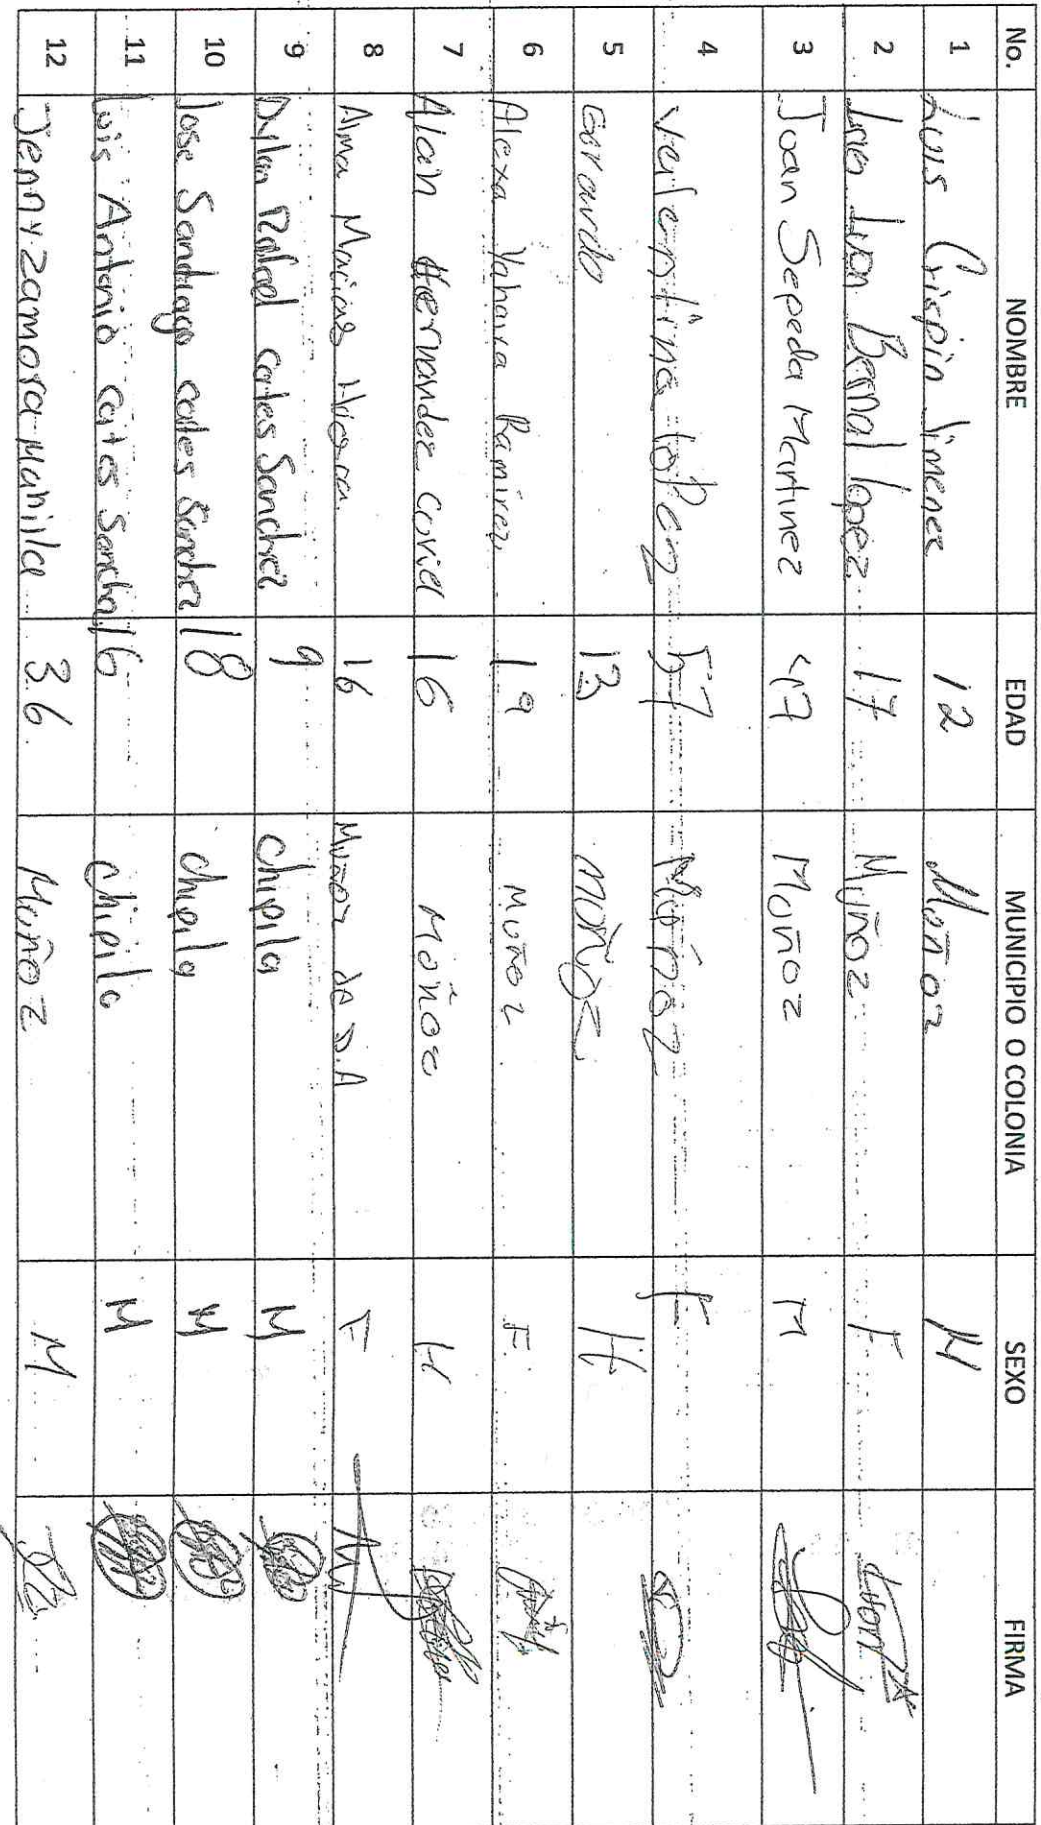 No. NOMBRE EDAD MUNICIPIO O COLONIA SEXO FIRMA
1 Luis Crispin Jimenez 12 Muñoz M
2 Bernal lopez 17 Muñoz F
3 Juan Sepeda Martinez 47 Muñoz M
4 loPez 57 Muñoz F
5 Gerardo 13 Moñoz H
6 Alexa Yahaira Ramirez 19 Muñoz F
7 Alan Hernandez Coriel 16 Moñoz H
8 Alma Macias 16 Muñoz de D.A F
9 Dylan Rafael cortes Sanchez 9 Chipila M
10 Jose Santiago cortes Sanchez 18 chipila M
11 Luis Antonio cortes Sanchez 16 Chipila M
12 Jenny zamora Manilla 36 Muñoz M